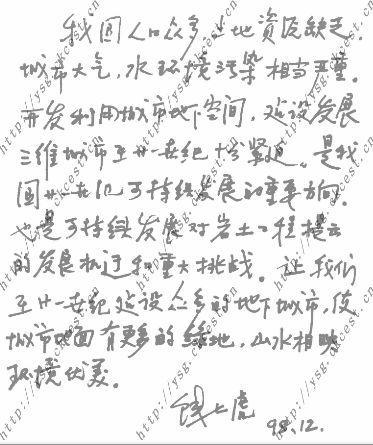 我国人口众多,土地资源缺乏,
城市大气,水环境污染相当严重。
开发利用城市地下空间,建设发展
三维城市至廿一世纪十分紧迫。是我
国廿一世纪可持续发展的重要方向。
也是可持续发展对岩土工程提出
的发展机遇和重大挑战。让我们
至廿一世纪建设众多的地下城市,使
城市地面有更多的绿地,山水相映
环境优美。
钱七虎
98.12.
http://ysg.ckcest.cn